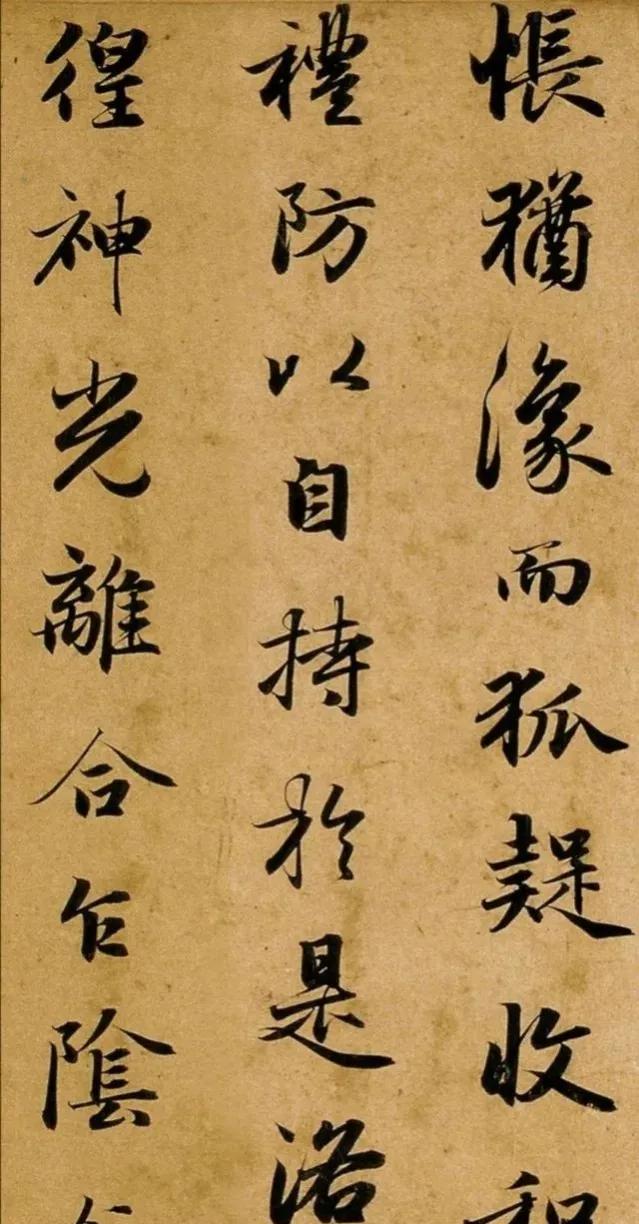 悵猶㵮而狐疑收和
禮防以自持於是洛
徨神光離合乍陰